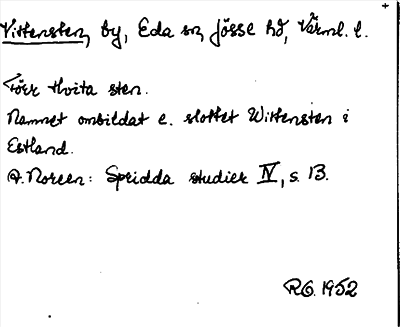 Vittensten, by, Eda sn, Jösse hd, Värml. l.
Förr Hvita sten.
Namnet ombildat e. slottet Wittensten i
Estland.
A. Noreen: Spridda studier IV, s. 13.
RG. 1952